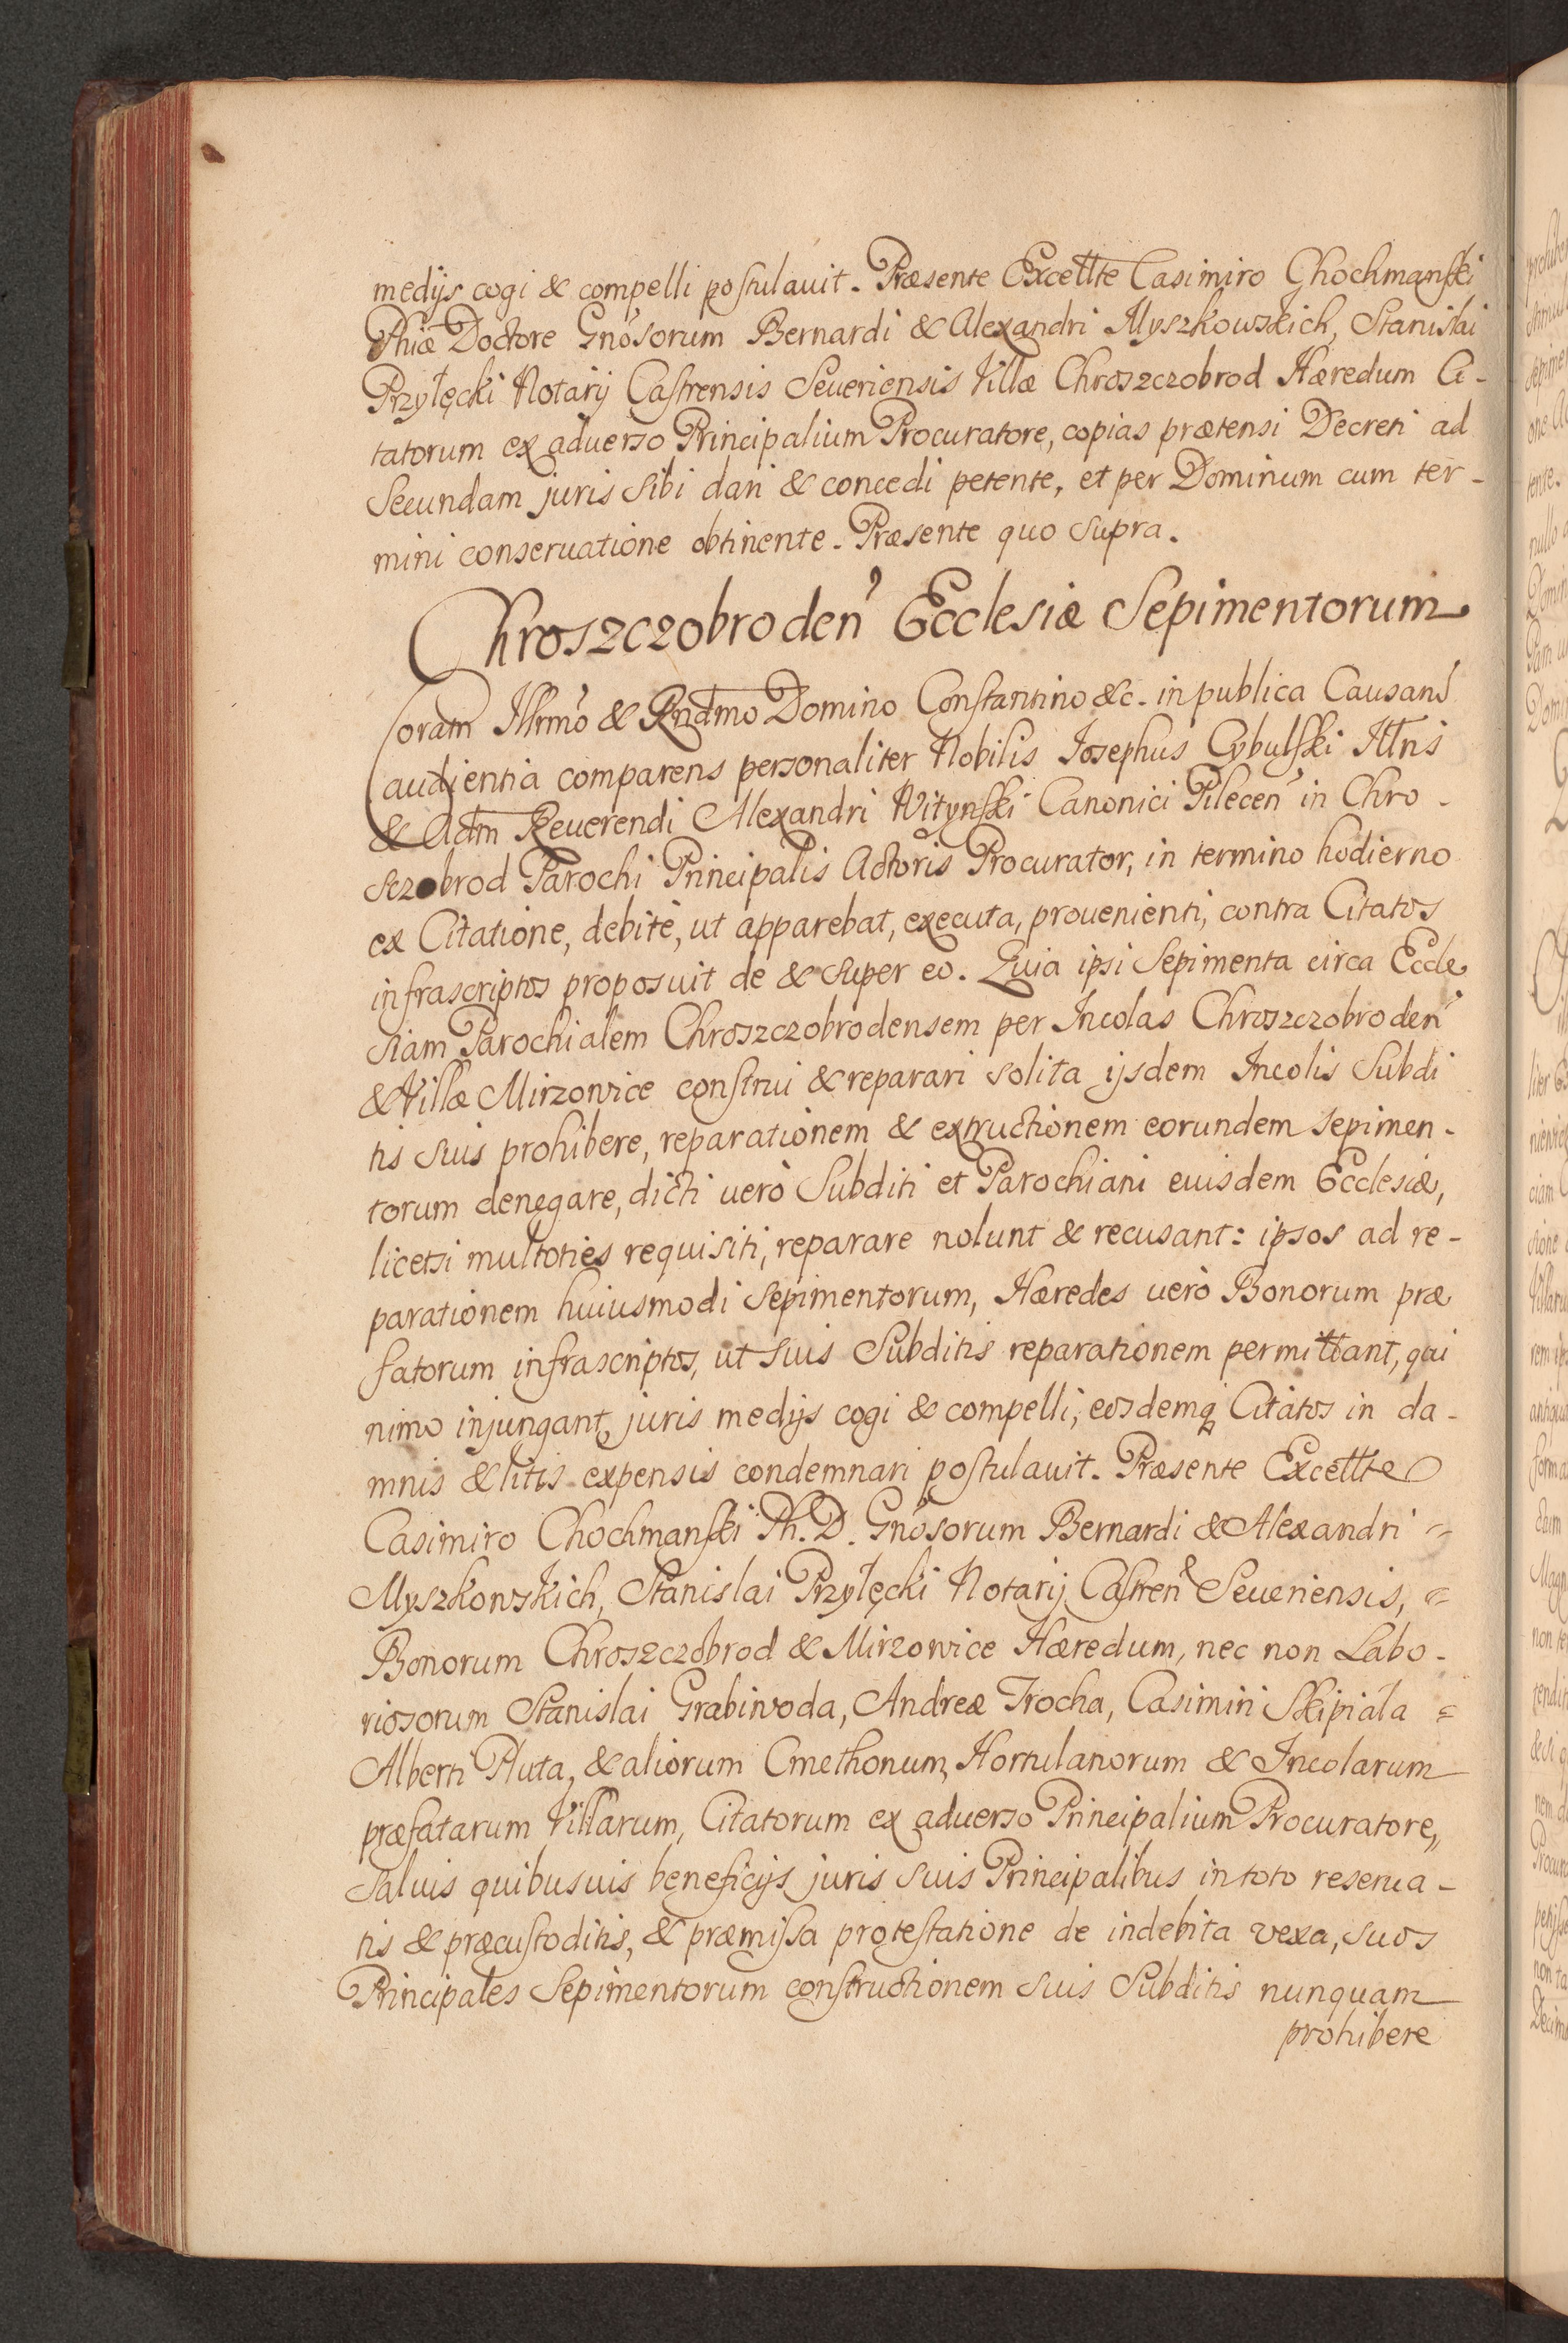 medijs cogi & compelli postulauit. Præsente Excellte Casimiro Chochmanski
Phiæ Doctore Gnosorum Bernardi & Alexandri Myszkowskich, Stanislai
Przyłęcki Notarij Castrensis Seueriensis Villæ Chroszczobrod Hæredum Ci-
tatorum ex aduerso Principalium Procuratore, copias prætensi Decreti ad
Secundam juris sibi dari & concedi petente, et per Dominum cum ter-
mini conseruatione obtinente. Præsente quo supra.
Chroszczobroden Ecclesiæ Sepimentorum
Coram Illrmo & Rndmo Domino Constantino &c. in publica Causarū
audientia comparens personaliter Nobilis Josephus Cybulski Illris
& Adm Reuerendi Alexandri Witynski Canonici Pilecen in Chro-
sczobrod Parochi Principalis Actoris Procurator, in termino hodierno
ex Citatione, debitè, ut apparebat, executa, prouenienti, contra Citatos
infrascriptos proposuit de & super eo. Quia ipsi Sepimenta circa Eccle
siam Parochialem Chroszczobrodensem per Incolas Chroszczobroden
& Villæ Mirzowice construi & reparari solita ijsdem Incolis Subdi
tis suis prohibere, reparationem & extructionem eorundem sepimen-
torum denegare, dicti uerò Subditi et Parochiani euisdem Ecclesiæ,
licetsi multoties requisiti, reparare nolunt & recusant: ipsos ad re-
parationem huiusmodi Sepimentorum, Hæredes uerò Bonorum præ
fatorum infrascriptos, ut suis Subditis reparationem permittant, qui
nimo injungant, juris medijs cogi & compelli, eosdemq Citatos in da-
mnis & litis expensis condemnari postulauit. Præsente Excellte
Casimiro Chochmanski Ph. D. Gnosorum Bernardi & Alexandri =
Myszkowskich, Stanislai Przyłęcki Notarij Castren Seueriensis, =
Bonorum Chroszczobrod & Mirzowice Hæredum, nec non Labo-
riosorum Stanislai Grabiwoda, Andreæ Trocha, Casimiri Skipiała =
Alberti Pluta, & aliorum Cmethonum, Hortulanorum & Incolarum
præfatarum Villarum, Citatorum ex aduerso Principalium Procuratore,
Saluis quibusuis beneficijs juris suis Principalibus in toto reserua-
tis & præcustoditis, & præmissa protestatione de indebita vexa, suos
Principales Sepimentorum constructionem suis Subditis nunquam
prohibere